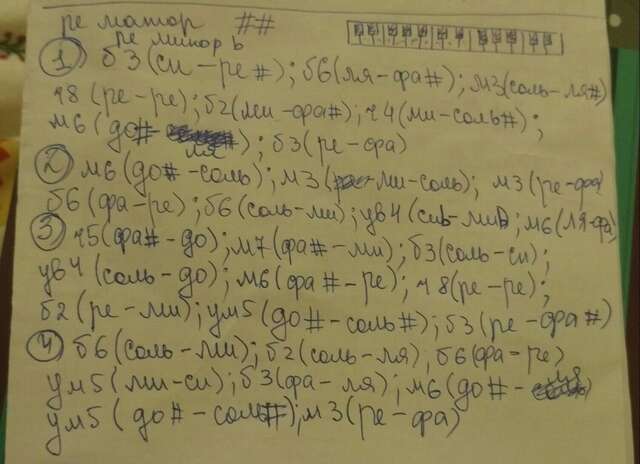 ре мажор ##
ре минор b
① б3 (си – ре#); б6 (ля – фа#); м3 (соль – ля#)
ч8 (ре – ре); б2 (ми – фа#); ч4 (ми – соль#);
м6 (до# – ля); б3 (ре – фа)
② м6 (до# – соль); м3 (ми – соль); м3 (ре – фа)
б6 (фа – ре); б6 (соль – ми); ув4 (сиb – миb); м6 (ля – фа)
③ ч5 (фа# – до); м7 (фа# – ми); б3 (соль – си);
ув4 (соль – до); м6 (фа# – ре); ч8 (ре – ре);
б2 (ре – ми); ум5 (до# – соль#); б3 (ре – фа#)
④ б6 (соль – ми); б2 (соль – ля), б6 (фа – ре)
ум5 (ми – си); б3 (фа – ля); м6 (до# – ля)
ум5 (до# – соль#); м3 (ре – фа)